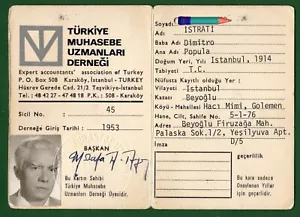 TÜRKİYE
MUHASEBE
UZMANLARI
DERNEĞİ
Expert accountants' association of Turkey
P. O. Box 508 Karaköy, İstanbul - TURKEY
Hüsrev Gerede Cad. 21/2 Teşvikiye - İstanbul
Tel.: 48 42 27 - 47 47 68 P.K.: 508 - Karaköy
Sicil No. : 45
Derneğe Giriş Tarihi : 1953
BAŞKAN
Bu Kartın Sahibi
Türkiye Muhasebe
Uzmanları Derneği Üyesidir.
Soyadı
Adı : ISTRATI
Baba Adı : Dimitro
Ana Adı : Popula
Yeri, : Istanbul, 1914
Tabiyeti : T.C.
Nüfusta Kayıtlı olduğu Yer :
Vilayeti : Istanbul
Kazası : Beyoğlu
Köyü - Mahallesi : Hacı Mimi, Golemen,
Hane, Cilt, Sahife No. : 5-1-76
Adresi : Beyoğlu Firuzağa Mah.
Palaska Sok.1/2, Yeşilyuva Apt.
D/5
geçerlilik
Bu kart sadece
Onaylanan Yıllar
için geçerlidir.